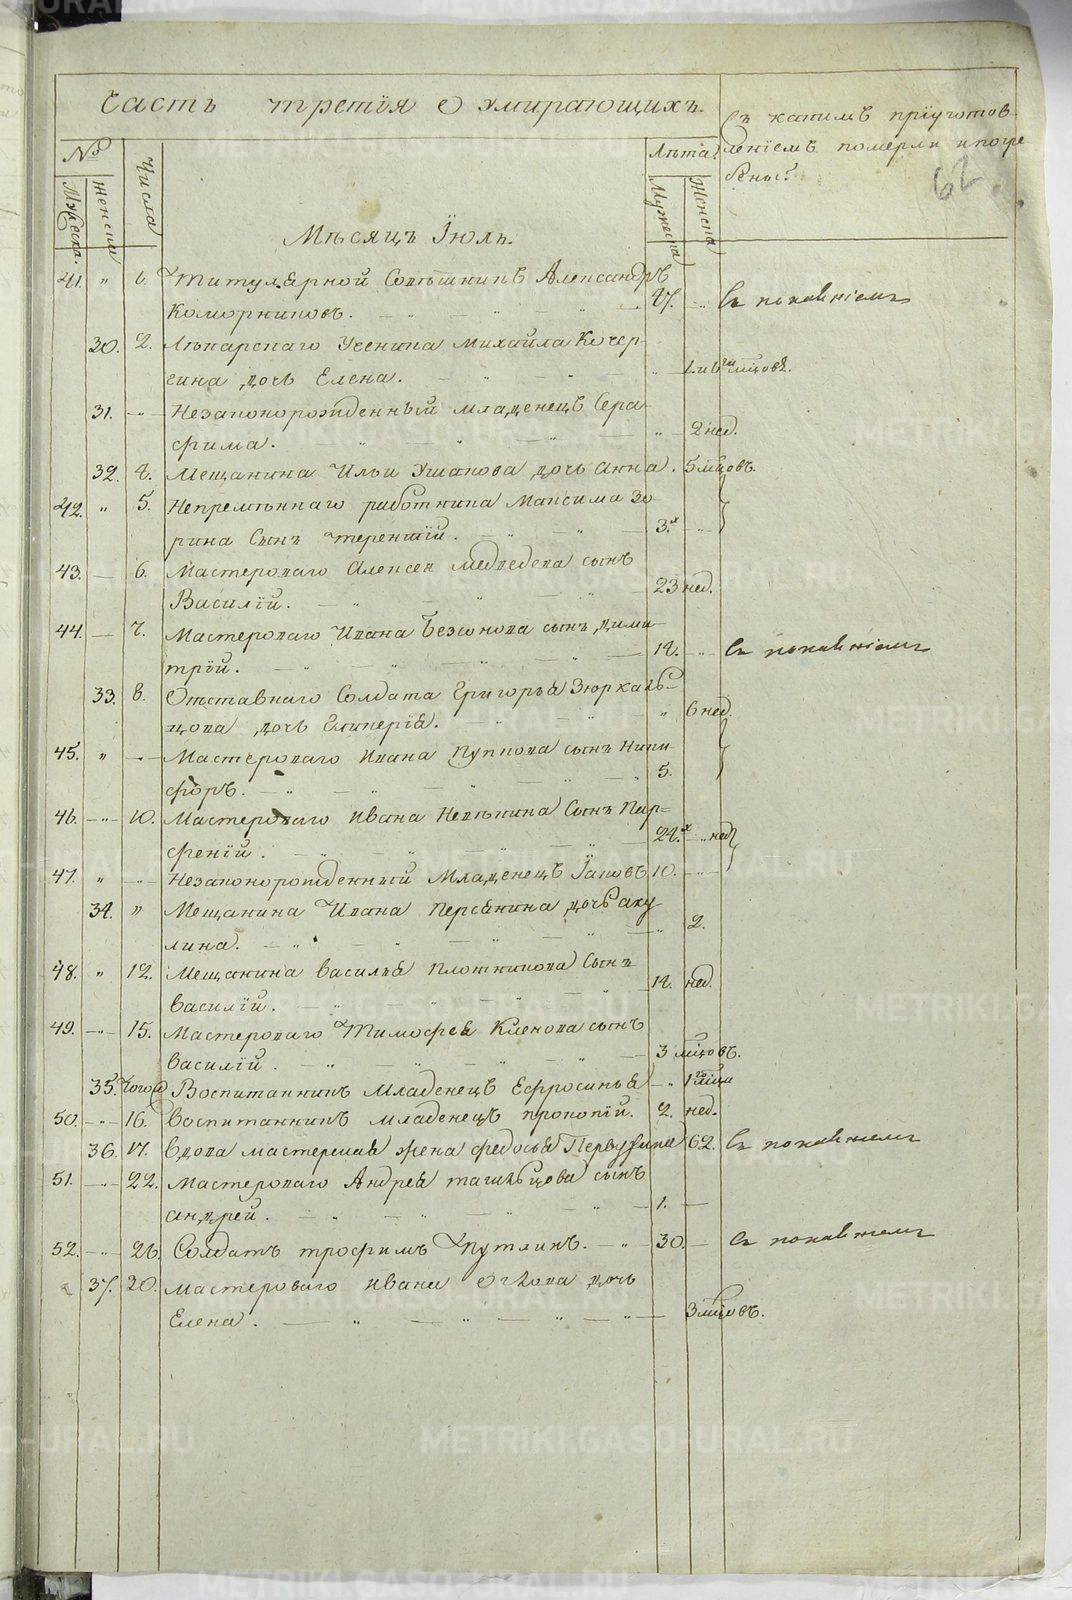 Часть третія о умирающихъ.
Съ какимъ пріуготов-
леніемъ померли и погре
бены?
62
№
Числа
Лѣта.
Мужеска.
Женска
Мужеска
Женска
Мѣсяцъ Іюль.
41. " 1. Титулярной Совѣтникъ Александръ
Коморниковъ. 47. съ покаяніемъ
30. 2. Лѣкарскаго Ученика Михайла Кочер-
гина дочь Елена. 1. и мѣцовъ.
31. Незаконорожденный младенецъ Сера
фима. 2 нед.
32. 4. Мещанина Ильи Ушакова дочь Анна. 5 мѣцовъ.
42. " 5. Непремѣннаго работника Максима Зо
рина Сынъ Терентій. 3.
43. 6. Мастероваго Алексея Медведева сынъ
Василій. 23 нед.
44. 7. Мастероваго Ивана Безсонова сынъ Дими
трій. 14. съ покаяніемъ
33. 8. Отставнаго Солдата Григорья Зюркаль-
цова дочь Гликерія. 6 нед.
45. " Мастероваго Ивана Пупкова сынъ Ники
форъ. 5.
46. 10. Мастероваго Ивана Сынъ Пар=
феній. 24. нед
47. " Незаконорожденный Младенецъ Іаковъ 10.
34. " Мещанина Ивана дочь Аку
лина. 2.
48. " 12. Мещанина Василья Плотникова Сынъ
Василій. 14. нед.
49. 15. Мастероваго Тимофея Кленова сынъ
Василій. 3 мѣцовъ.
35. Тогож Воспитанникъ Младенецъ Ефросинья 1 мѣца
50. 16. Воспитанникъ младенецъ Прокопій. 2. нед.
36. 17. Вдова мастерская жена Федосья Первушина 62. съ покаяніемъ
51. 22. Мастероваго Андрея Тагильцова сынъ
Андрей. 1.
52. 26. Солдатъ Трофимъ Путлинъ. 30. съ покаяніемъ
37. 20. Мастероваго Ивана дочь
Елена. 3 мѣцовъ.
METRIKI.GASO-URAL.RU